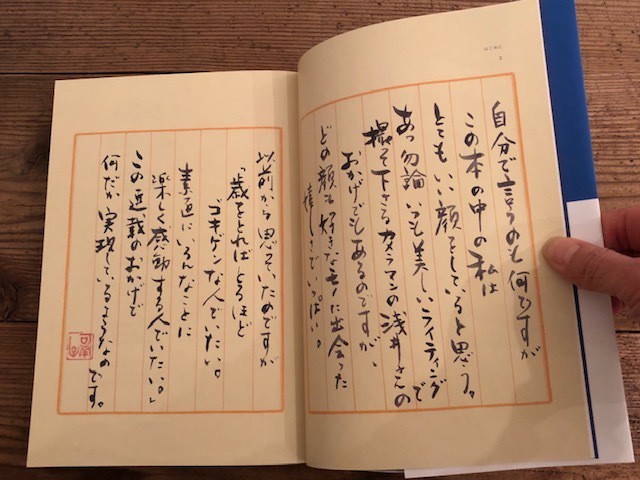 はじめに
自分で言うのも何ですが
この本の中の私は
とてもいい顔をしていると思う。
あっ勿論いつも美しいライティングで
撮って下さるカメラマンの浅井さんの
おかげでもあるのですが、
どの顔も好きなモノに出会った
嬉しさでいっぱい。
以前から思っていたのですが
「歳をとればとるほど
ゴキゲンな人でいたい。
素直にいろんなことに
楽しく感動する人でいたい。」
この連載のおかげで
何だか実現しているようなの
です。